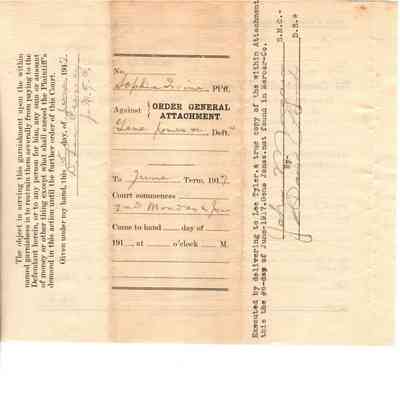 The object in serving this garnishment upon the within
named garnishees is to restrain them severally from paying to the
Defendant herein, or to any person for him, any sum or amount
of money or other thing except what shall exceed the Plaintiff's
demand in this action until the further order of this Court.
Given under my hand, this day, of June 1917.
No.
Sophia Pl'ff.
Against
ORDER GENERAL
ATTACHMENT.
Gene Jones Deft.
To June Term, 1917
Court commences
2nd Monday in June
Came to hand day of
191 , at o'clock M.
Executed by delivering to Lee Tyler, a true copy of the within Attachment
this the #6-day of June-1917. Gene Jones. not found in Mercer-Co.
S.M.C.-
By-
D.S.